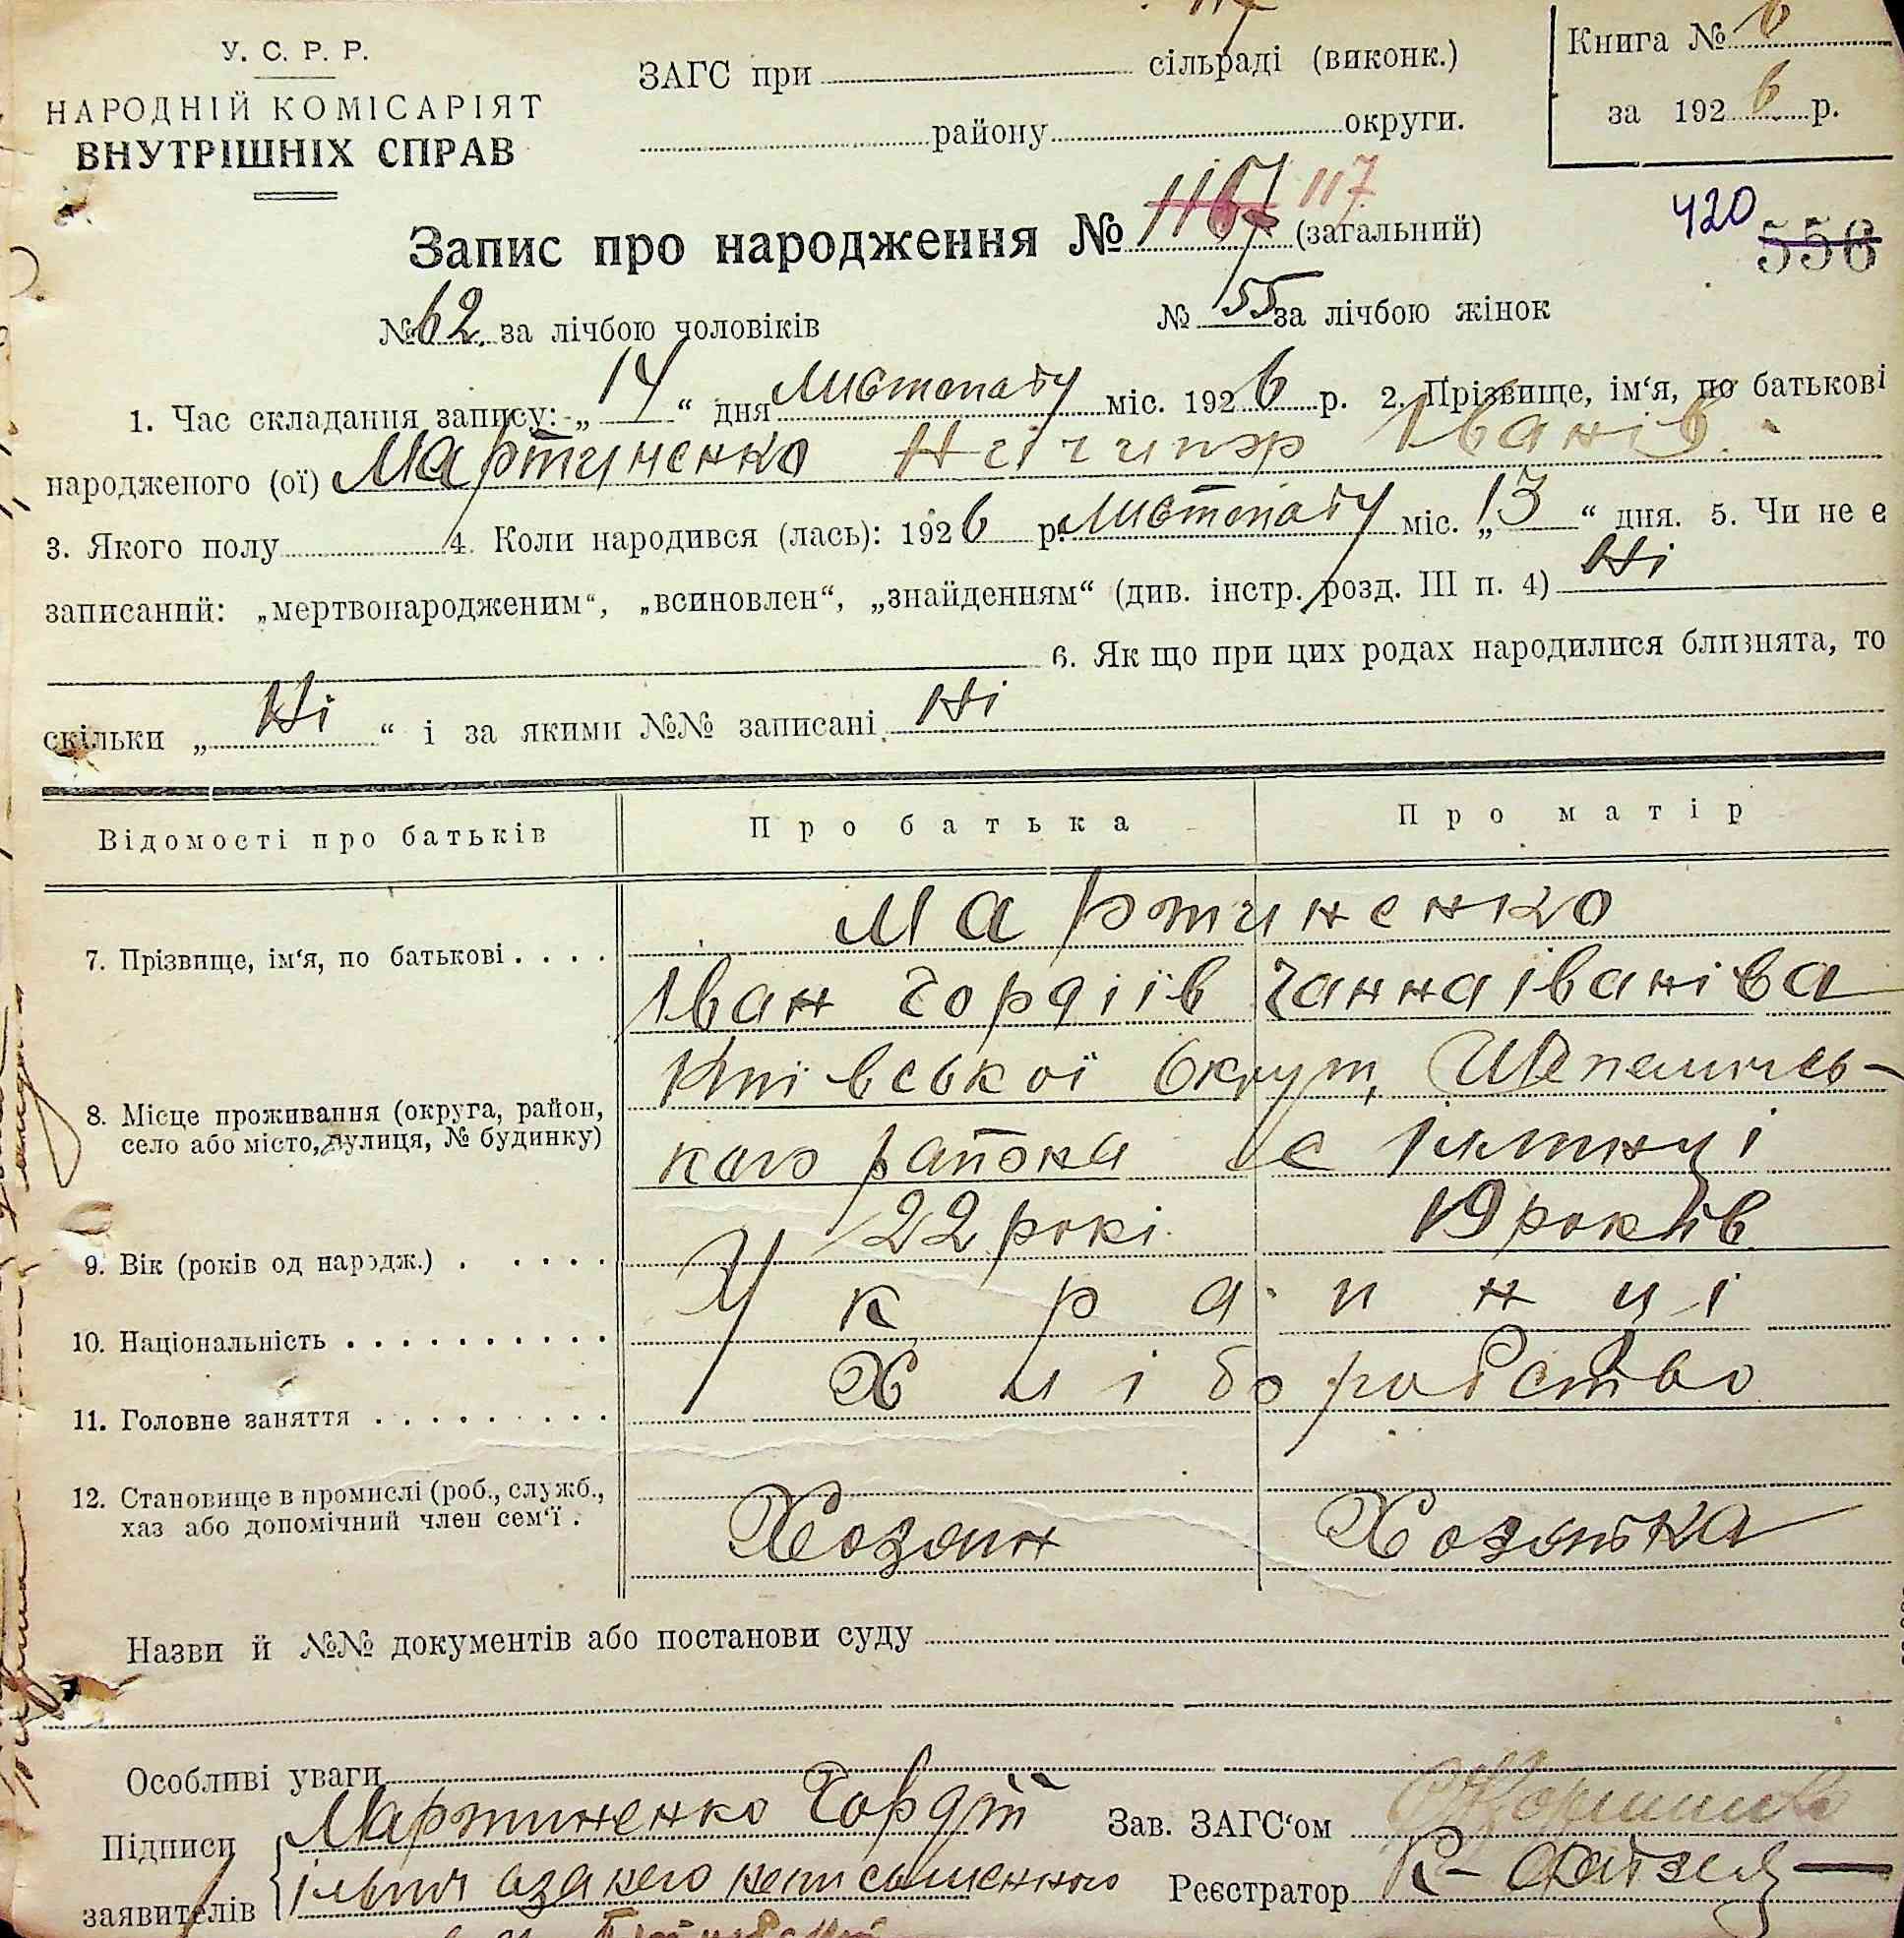 У. С. Р. Р.
НАРОДНІЙ КОМІСАРІЯТ
ВНУТРІШНІХ СПРАВ
ЗАГС при сільраді (виконк.)
району округи.
Книга № 6
за 1926 р.
Запис про народження № 1167 117 (загальний)
420 556
№ 62 за лічбою чоловіків № 55 за лічбою жінок
1. Час складання запису: „14“ дня Листопаду міс. 1926 р. 2. Прізвище, ім‘я, по батькові
народженого (ої) Мартиненко Нічипор Іванів
3. Якого полу 4. Коли народився (лась): 1926 р. Листопаду міс. „13“ дня. 5. Чи не є
записаний: „мертвонародженим“, „всиновлен“, „знайденням“ (див. інстр. розд. III п. 4) Ні
6. Як що при цих родах народилися близнята, то
скільки „Ні“ і за якими №№ записані Ні
Відомості про батьків Про батька Про матір
7. Прізвище, ім‘я, по батькові . . . . Мартиненко
Іван Гордіїв Ганна Іванівна
8. Місце проживання (округа, район,
село або місто, вулиця, № будинку)
Київської Округи
кого района с
9. Вік (років од народж.) . . . . . . 22 рокі 19 років
10. Національність . . . . . . . . . . . Українці
11. Головне заняття . . . . . . . . . Хліборобство
12. Становище в промислі (роб., служб.,
хаз або допомічний член сем‘ї .
Хозяин Хозяйка
Назви й №№ документів або постанови суду
Особливі уваги
Підписи
заявителів
Мартиненко Гордій
а за него неписьменного
Зав. ЗАГС‘ом
Реєстратор